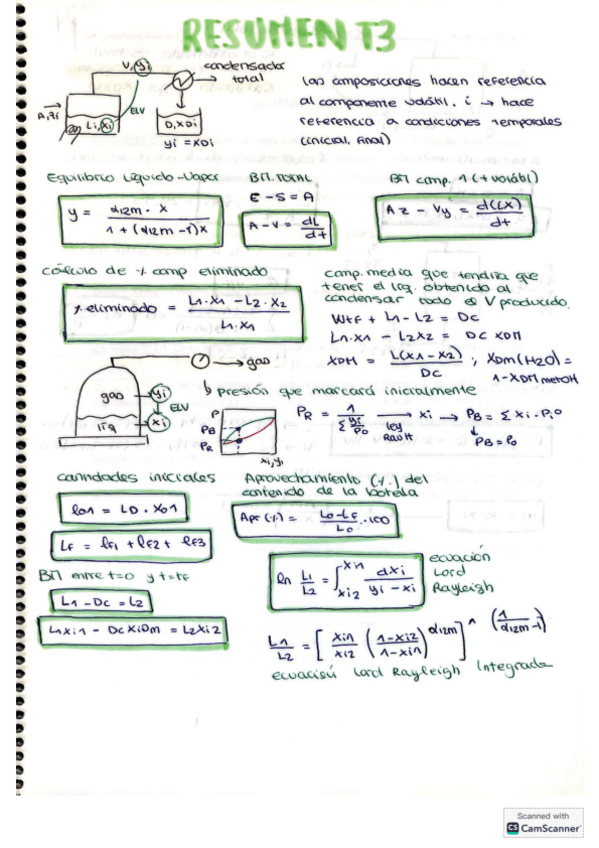 RESUMEN T3
V, yi
condensador
total
A, zi
ELV
Li, xi
D, xDi
yi = xDi
las composiciones hacen referencia
al componente volátil. i → hace
referencia a condiciones temporales
(inicial, final)
Equilibrio Líquido-Vapor
y = α12m · x / 1 + (α12m - 1)x
BM. TOTAL
E - S = A
A - V = dL/dt
BM comp. 1 (+ volátil)
Az - Vy = d(Lx)/dt
cálculo de % comp eliminado
% eliminado = L1·x1 - L2·x2 / L1·x1
comp. media que tendría que
tener el líq. obtenido al
condensar todo el V producido.
L1 - L2 = Dc
L1·x1 - L2x2 = Dc xDM
xDM = L(x1 - x2) / Dc ; xDm(H2O) =
1 - xDM metOH
gas
gas
yi
ELV
liq
xi
↳ Presión que marcará inicialmente
P
PB
PR
xi, yi
PR = 1 / Σ yi/Pº → xi → PB = Σ xi · Piº
ley
Raoult
cantidades iniciales
l01 = L0 · x01
LF = lF1 + lF2 + lF3
Aprovechamiento (%) del
contenido de la botella
Apr (%) = L0 - LF / L0 · 100
BM entre t=0 y t=tF
L1 - Dc = L2
L1xi1 - DcxiDm = L2xi2
ln L1/L2 = ∫ xi2 xi1 dxi / yi - xi
ecuación
Lord
Rayleigh
L1/L2 = [ xi1/xi2 ( 1-xi2 / 1-xi1 ) α12m ] ^ ( 1 / α12m-1 )
ecuación Lord Rayleigh Integrada
Scanned with
CS CamScanner